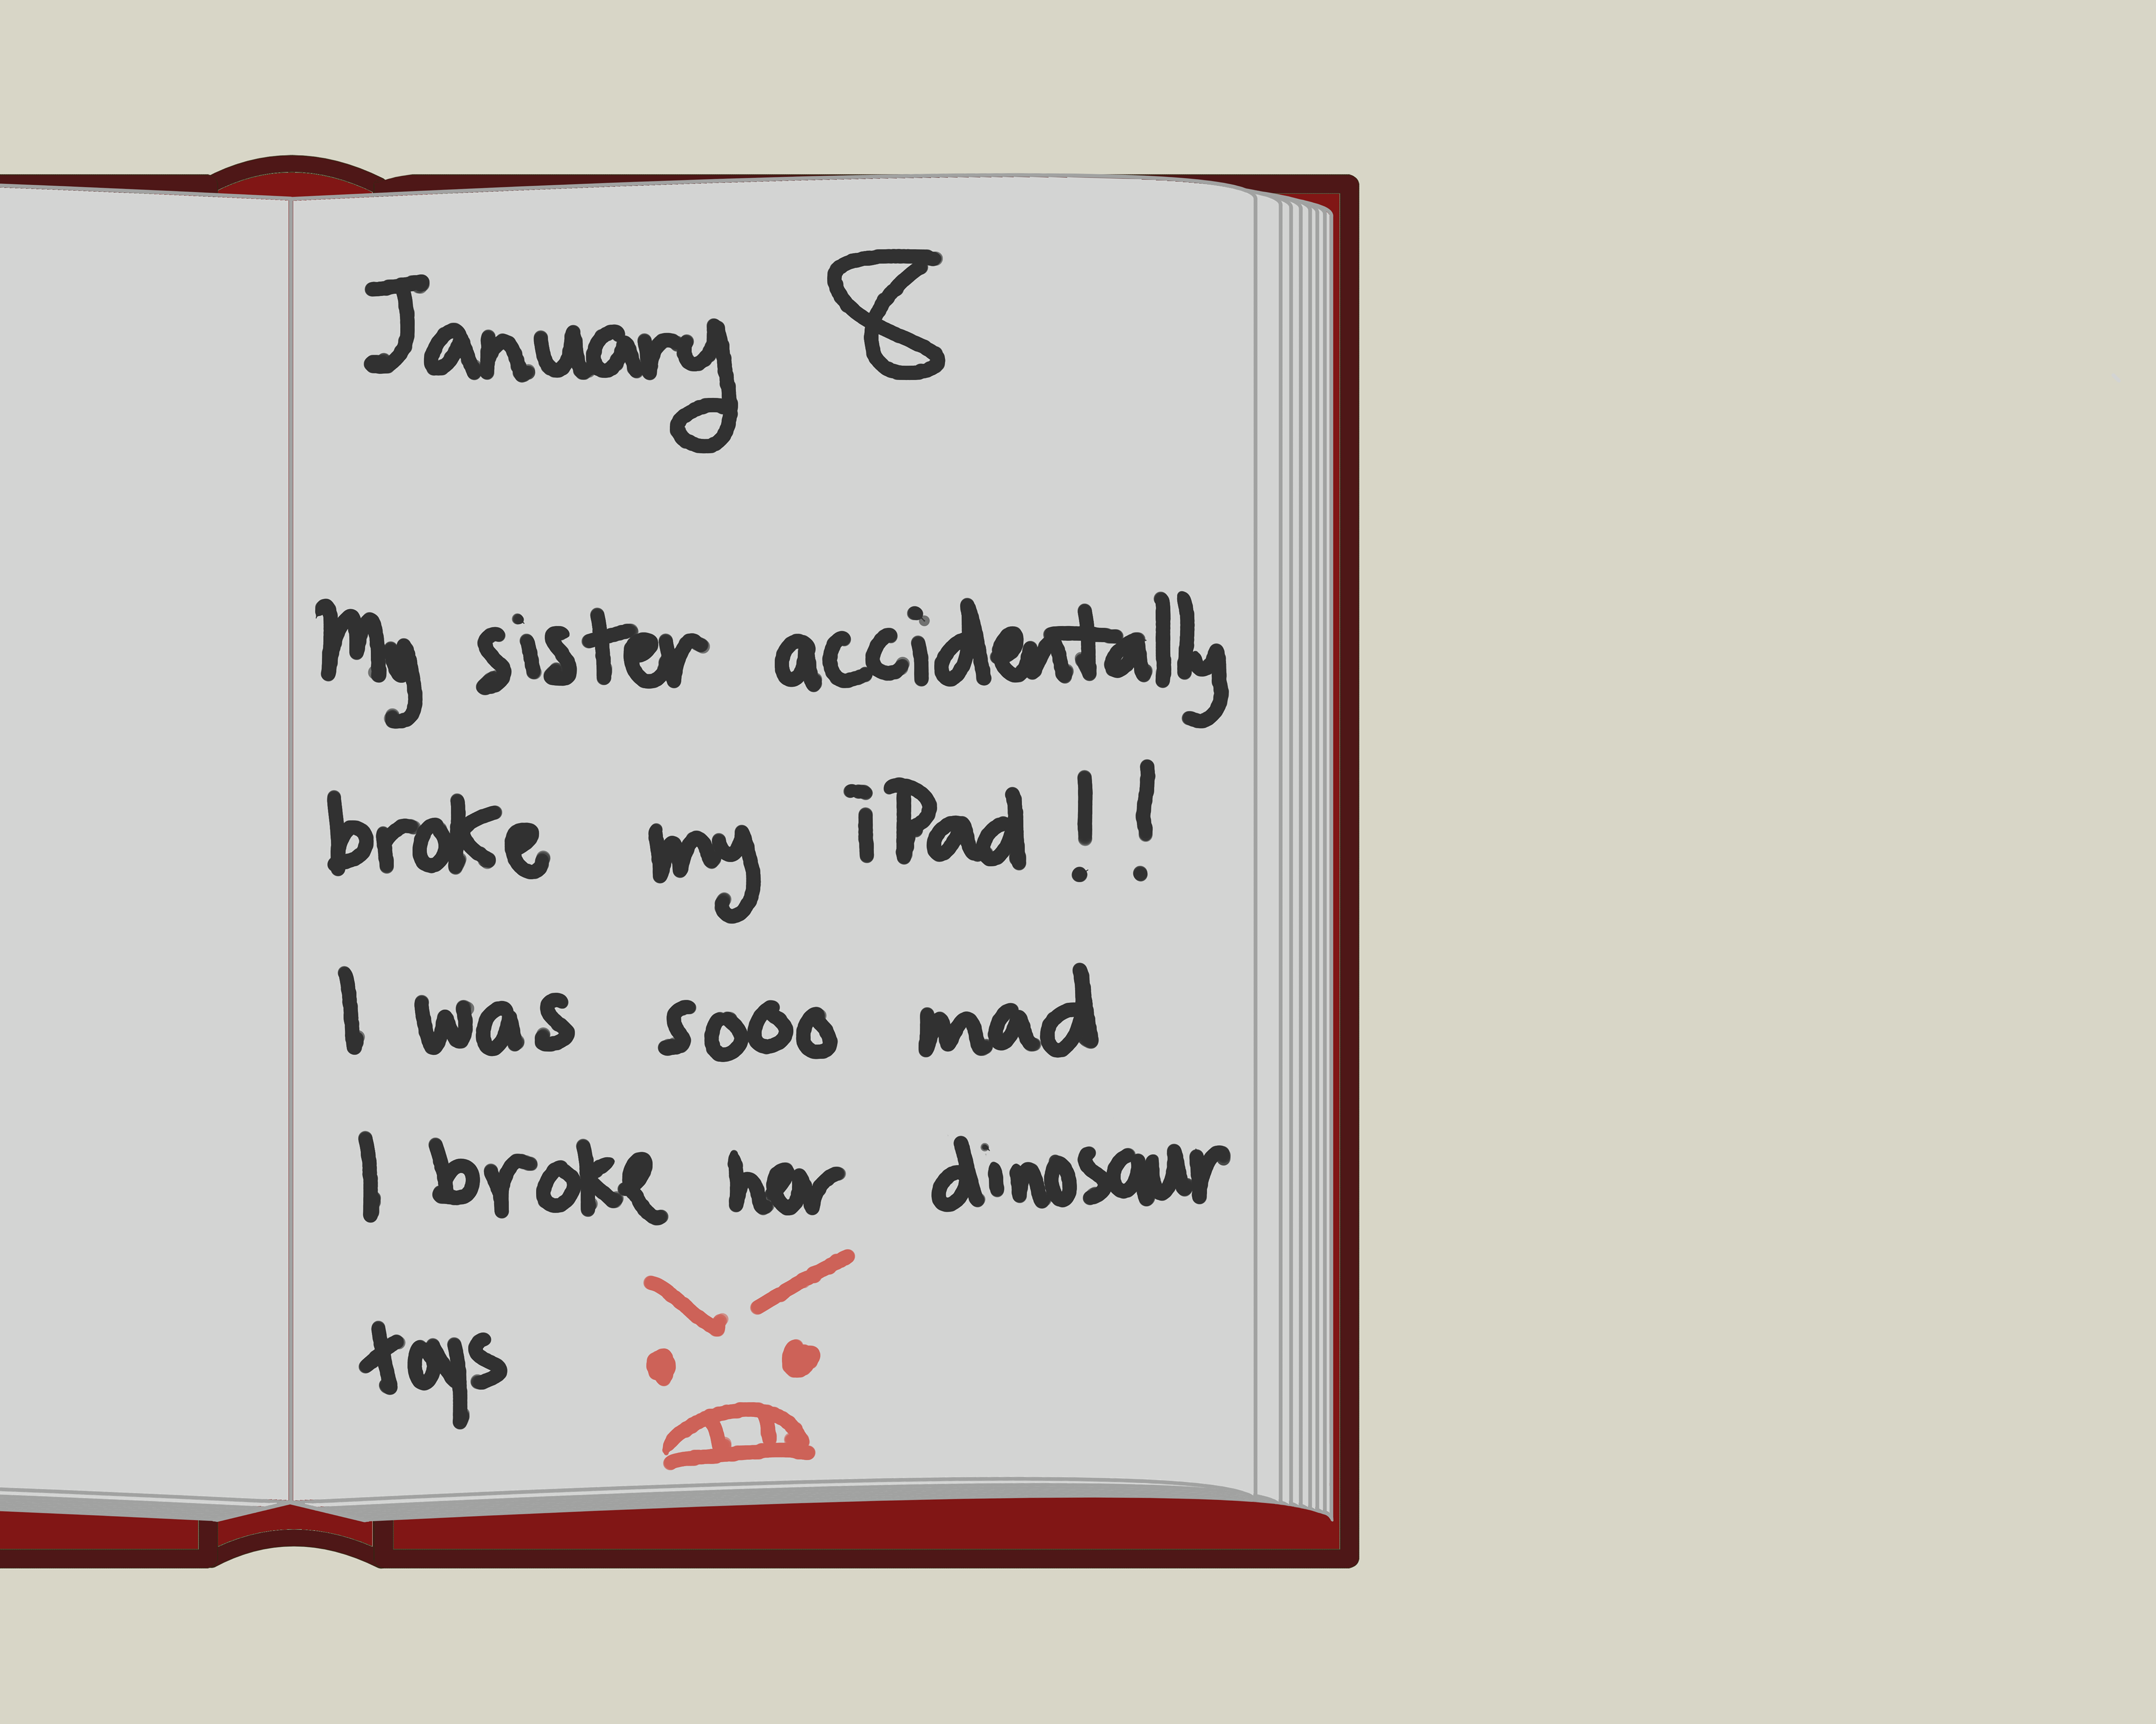 January 8
My sister acidentally
broke my iPad!!
I was sooo mad
I broke her dinosaur
toys